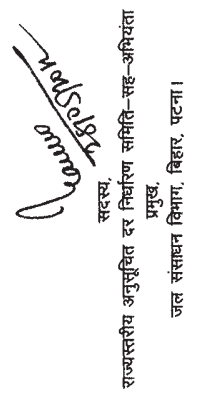 सदस्य,
राज्यस्तरीय अनुसूचित दर निर्धारण समिति–सह–अभियंता
प्रमुख,
जल संसाधन विभाग, बिहार, पटना।